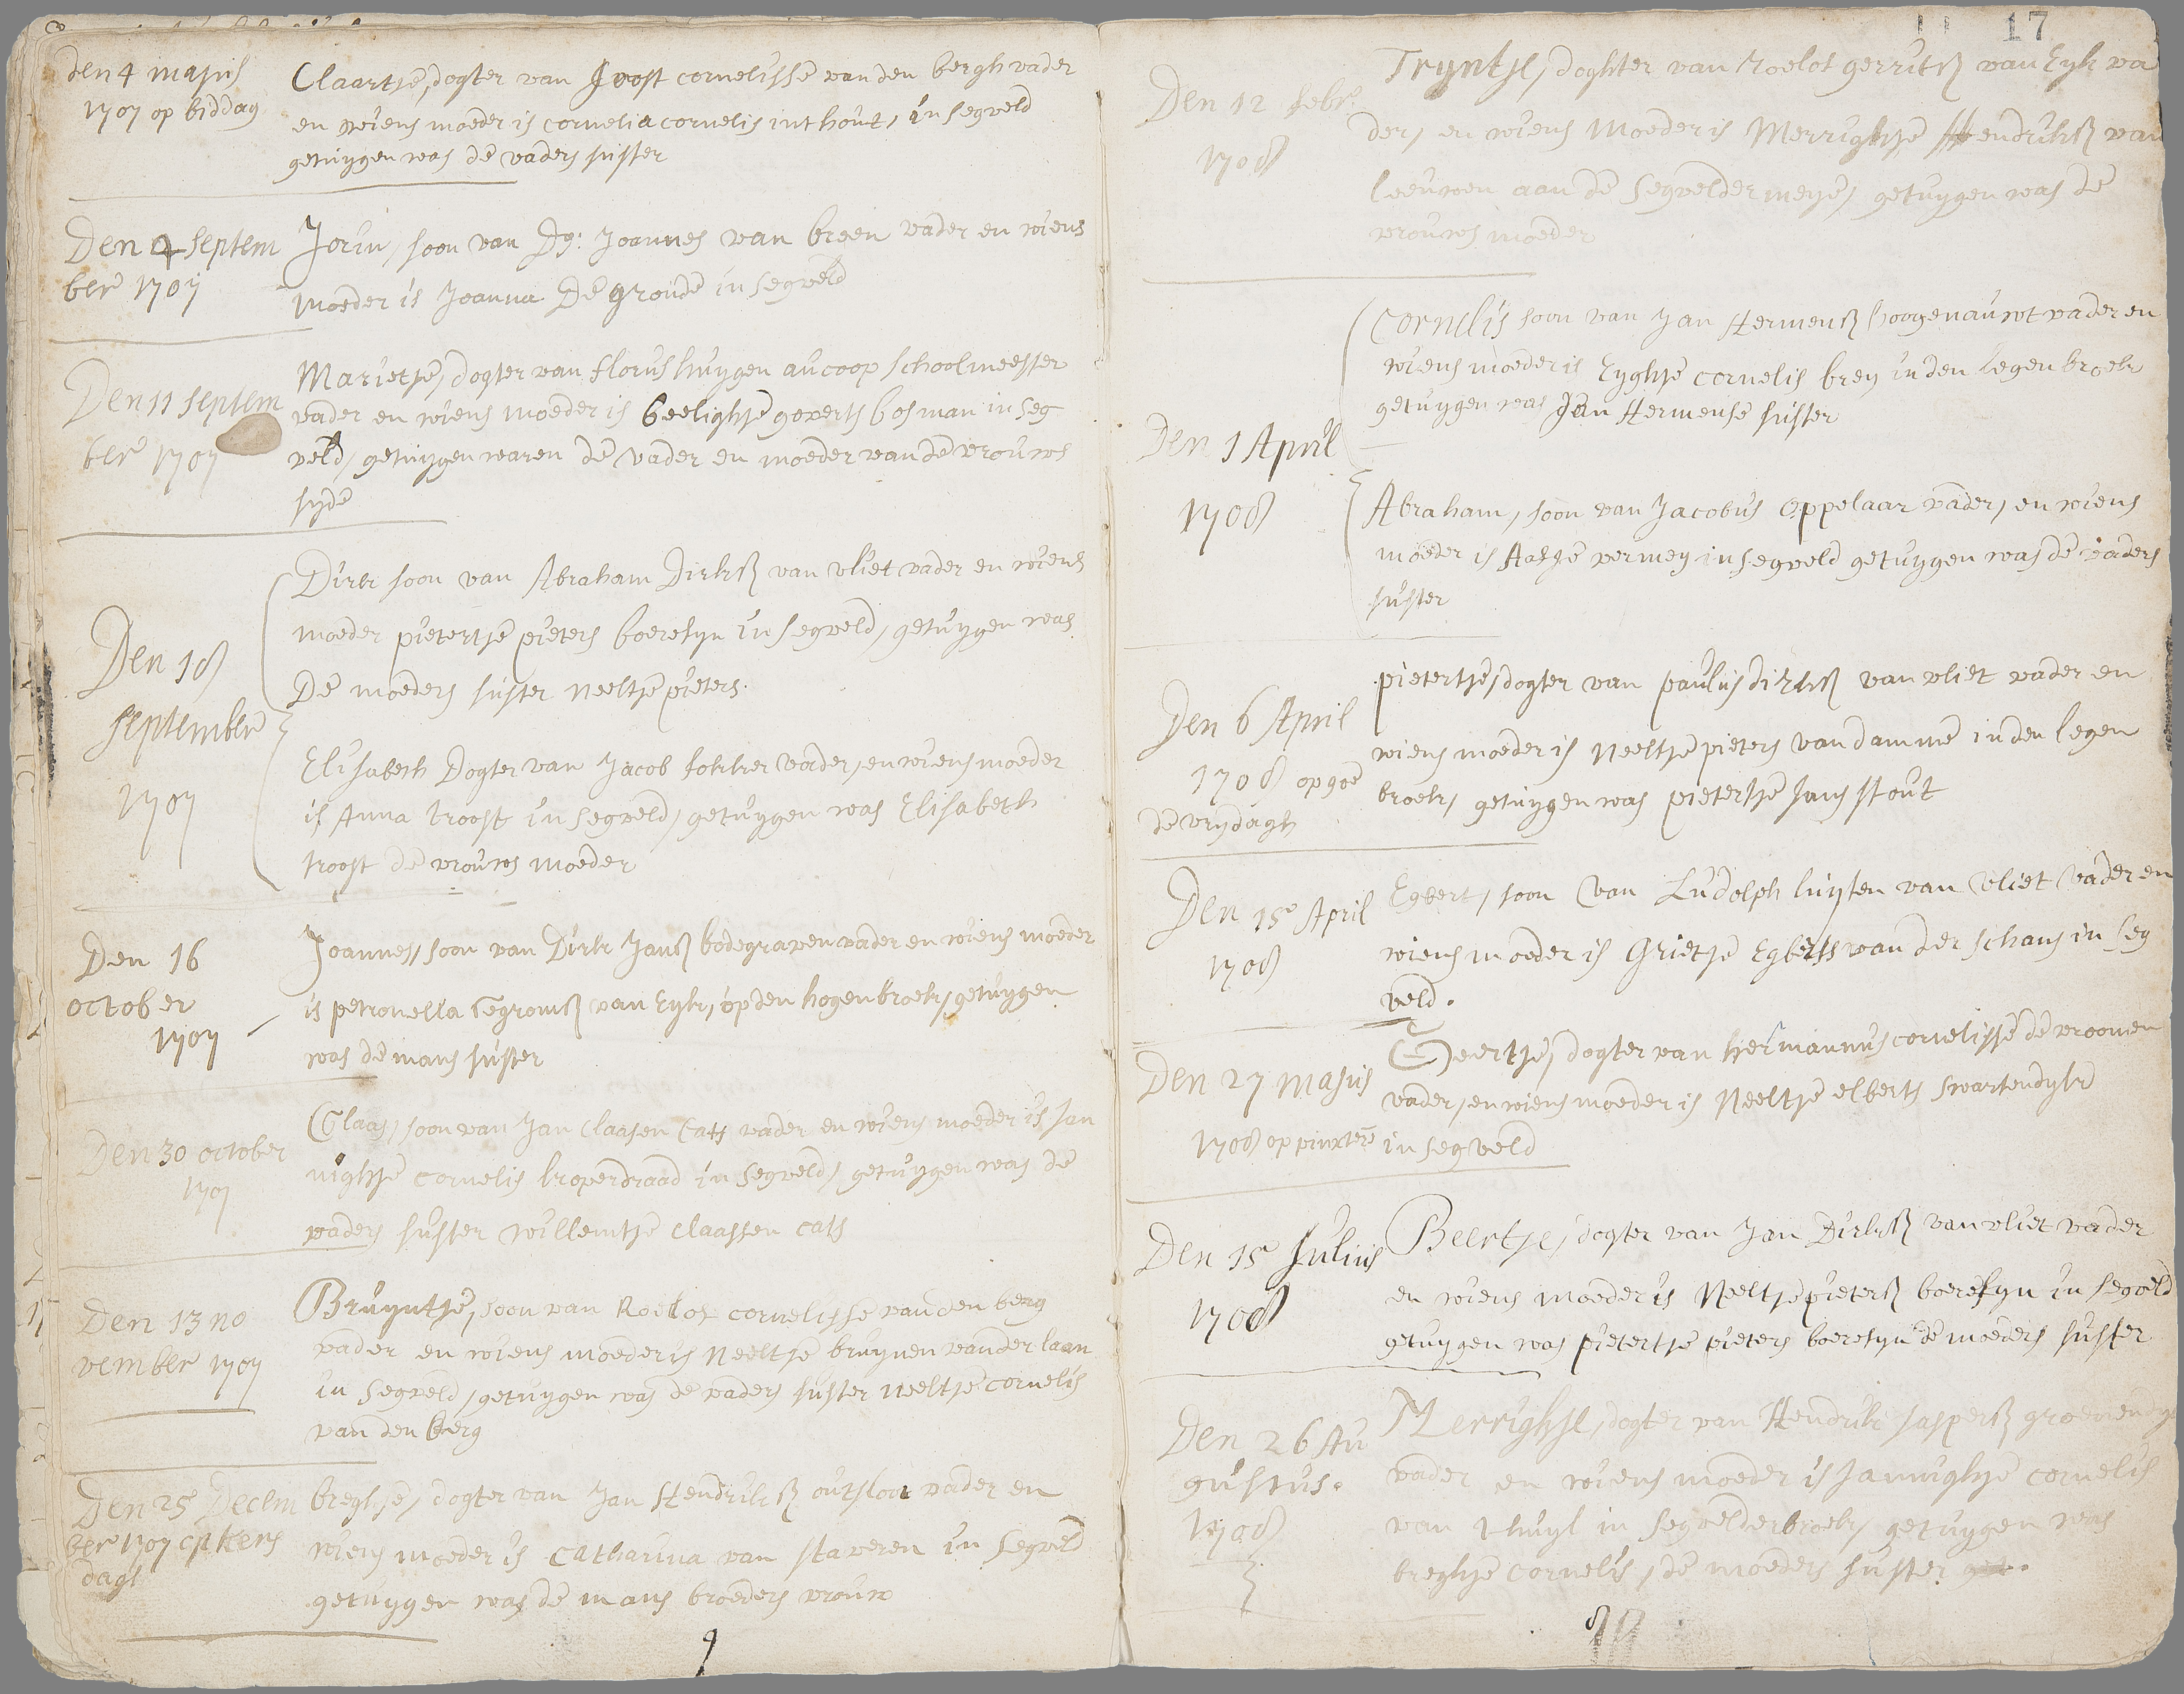 den 4 majus
1707 op biddag
Claartje, dogter van Joost cornelisse van den bergh vader
en wiens moeder is cornelia cornelis int hout, in segveld
getuygen was de vaders suster
Den 4 septem
ber 1707
Jorin, soon van Ds: Joannes van breen vader en wiens
moeder is Joanna De gronde in segveld
Den 11 septem
ber 1707
Marietje, dogter van florus huygen aucoop schoolmeester
vader en wiens moeder is beelightje goverts bosman in seg
veld, getuygen waren de vader en moeder van de vrouws
syde
Den 18
september
1707
Dirk soon van Abraham Dirksz van vliet vader en wiens
moeder pietertje pieters boeresyn in segveld, getuygen was
De moeders suster neeltje pieters.
Elisabeth Dogter van Jacob fokker vader, en wiens moeder
is Anna troost in segveld, getuygen was Elisabeth
troost de vrouws moeder
Den 16
october
1707
Joannes, soon van Dirk Jansz bodegraven vader en wiens moeder
is petronella van Eyk, op den hogenbroek, getuygen
was de mans suster
Den 30 october
1707
Claas, soon van Jan Claasen Cats vader en wiens moeder is Jan
nightje cornelis koperdraad in segveld, getuygen was de
vaders suster willemtje claassen cats
Den 13 no
vember 1707
Bruyntje, soon van Roelof cornelisse van den berg
vader en wiens moeder is Neeltje bruynen van der laan
in segveld, getuygen was de vaders suster neeltje cornelis
van den berg
Den 25 Decem
ber 1707 op kers
dagh
breghje, dogter van Jan Hendriksz outsloot vader en
wiens moeder is catharina van staveren in segveld
getuygen was de mans broeders vrouw
9
17
Den 12 febr.
1708
Tryntje, doghter van roelof gerritsz van Eyk va
der, en wiens moeder is Merrightje Hendriksz van
leeuwen aan de segveldermeye, getuygen was de
vrouws moeder
Den 1 April
1708
Cornelis soon van Jan Hermensz hoogenauwt vader en
wiens moeder is Eyghje cornelis brey in den legen broek
getuygen was Jan Hermense suster
Abraham, soon van Jacobus appelaar vader, en wiens
moeder is Aafje vermey in segveld getuygen was de vaders
suster
Den 6 April
1708 op goe
de vrydagh
pietertje, dogter van paulus dirksz van vliet vader en
wiens moeder is Neeltje pieters van damme in den legen
broek, getuygen was pietertje Jans stout
Den 15 April
1708
Egbert, soon van Ludolph luyten van vliet vader en
wiens moeder is Grietje Egberts van der schans in seg
veld.
Den 27 majus
1708 op pinxtere
Geertje, dogter van hermannus cornelisse de vroomen
vader, en wiens moeder is Neeltje elberts swartendyk
in segveld
Den 15 Julius
1708
Beertje, dogter van Jan Dirksz van vliet vader
en wiens moeder is Neeltje pietersz boeresyn in segveld
getuygen was pietertje pieters boeresyn de moeders suster
Den 26 Au
gustus.
1708
Merrighje, dogter van Hendrik Jaspersz groenendyk
vader en wiens moeder is Jannightje cornelis
van thuyl in segvelderbroek, getuygen was
breghje cornelis, de moeders suster